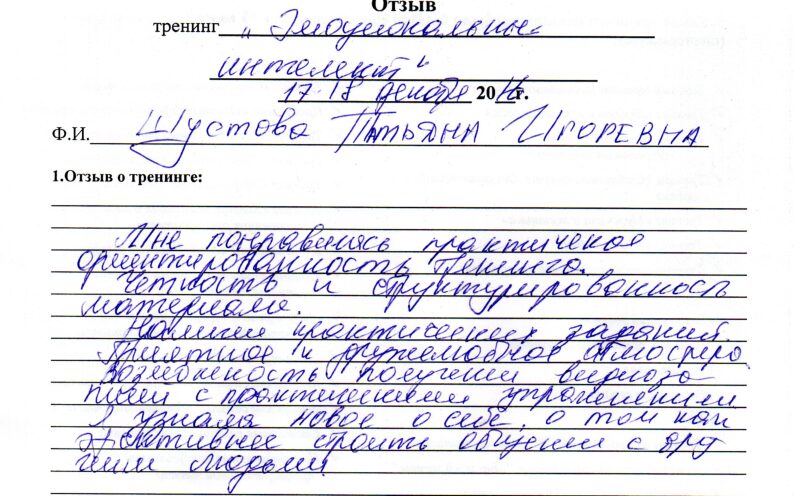 Отзыв
тренинг „Эмоциональный
интелект"
17-18 декабря 2016г.
Ф.И. Шустова Татьяна Игоревна
1.Отзыв о тренинге:
Мне понравилась практическая
ориентированность тренинга.
Четкость и структурированность
материала.
Наличие практических заданий.
Приятное и дружелюбное атмосфера
Возможность получения видиоза-
писи с практическими упражнениями
Я узнала новое о себе, о том как
эффективнее строить общение с дру
гими людьми